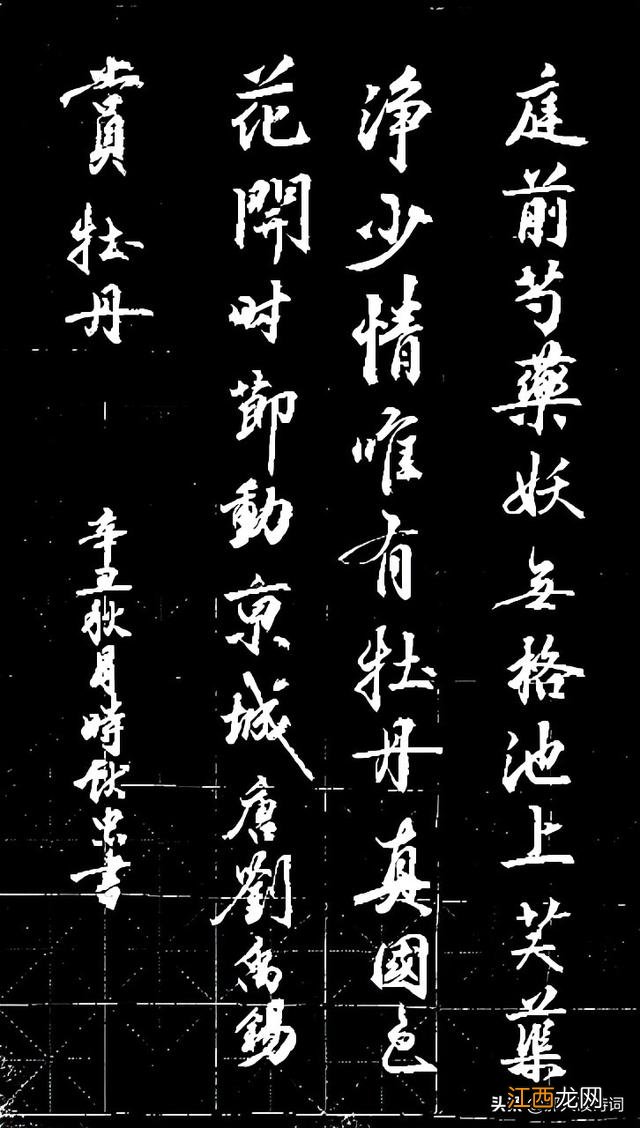 庭前芍藥妖無格池上芙蕖
淨少情唯有牡丹真國色
花開时節動京城唐劉禹錫
賞牡丹
辛丑秋月時忠書
江西龙网
头条 诗词